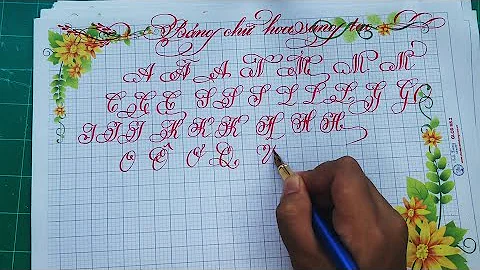 Bảng chữ hoa sáng tạo
A Ă Â N M M M
C G E S S S L L L G G
I I I K K K H H H
O Ô Ơ Q V